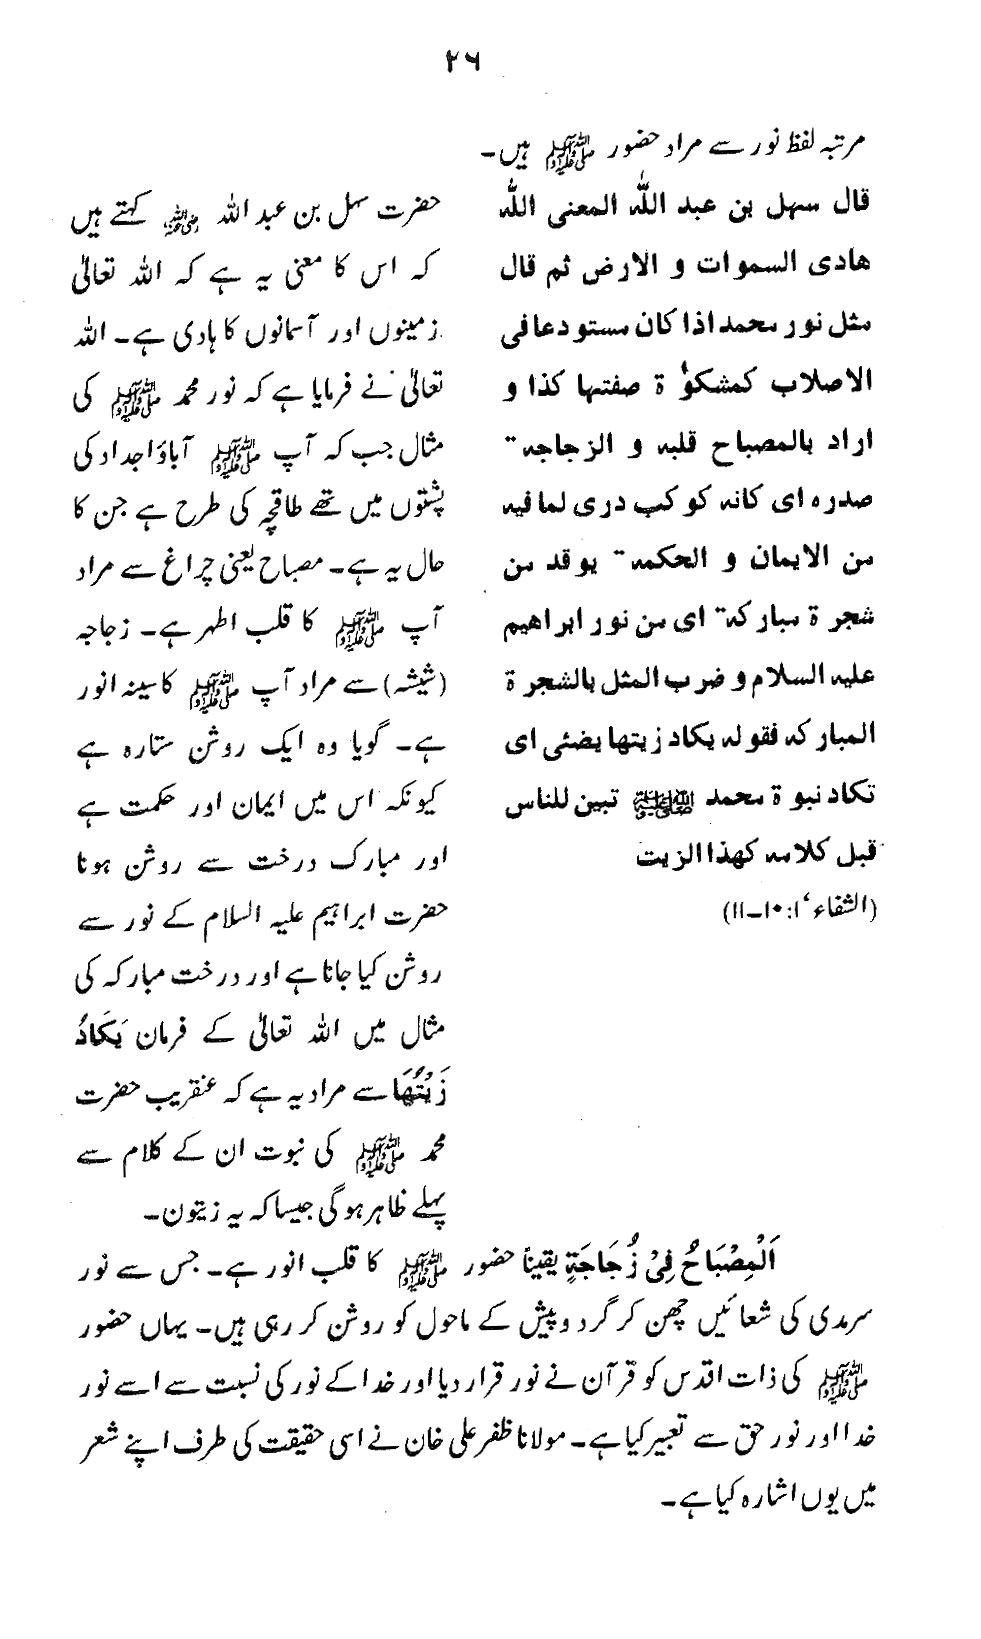 ۲۶
مرتبہ لفظ نور سے مراد حضور ﷺ ہیں۔
قال سہل بن عبد اللہ المعنی اللہ
ھادی السموات و الارض ثم قال
مثل نور محمد اذا کان مستودعا فی
الاصلاب کمشکوٰۃ صفتہا کذا و
اراد بالمصباح قلبہ و الزجاجۃ
صدرہ ای کانہ کوکب دری لما فیہ
من الایمان و الحکمۃ یوقد من
شجرۃ مبارکۃ ای من نور ابراھیم
علیہ السلام و ضرب المثل بالشجرۃ
المبارکہ فقولہ یکاد زیتھا یضئی ای
تکاد نبوۃ محمد ﷺ تبین للناس
قبل کلامہ کھذا الزیت
(الشفاء، ۱: ۱۰۔۱۱)
حضرت سہل بن عبد اللہ رضی اللہ عنہ کہتے ہیں
کہ اس کا معنی یہ ہے کہ اللہ تعالیٰ
زمینوں اور آسمانوں کا ہادی ہے۔ اللہ
تعالیٰ نے فرمایا ہے کہ نور محمد ﷺ کی
مثال جب کہ آپ ﷺ آباؤ اجداد کی
پشتوں میں تھے طاقچہ کی طرح ہے جن کا
حال یہ ہے۔ مصباح یعنی چراغ سے مراد
آپ ﷺ کا قلب اطہر ہے۔ زجاجہ
(شیشہ) سے مراد آپ ﷺ کا سینہ انور
ہے۔ گویا وہ ایک روشن ستارہ ہے
کیونکہ اس میں ایمان اور حکمت ہے
اور مبارک درخت سے روشن ہونا
حضرت ابراہیم علیہ السلام کے نور سے
روشن کیا جانا ہے اور درخت مبارکہ کی
مثال میں اللہ تعالیٰ کے فرمان یَکَادُ
زَیْتُھَا سے مراد یہ ہے کہ عنقریب حضرت
محمد ﷺ کی نبوت ان کے کلام سے
پہلے ظاہر ہو گی جیسا کہ یہ زیتون۔
اَلْمِصْبَاحُ فِیْ زُجَاجَۃٍ یقیناً حضور ﷺ کا قلب انور ہے۔ جس سے نور
سرمدی کی شعائیں چھن کر گرد و پیش کے ماحول کو روشن کر رہی ہیں۔ یہاں حضور
ﷺ کی ذات اقدس کو قرآن نے نور قرار دیا اور خدا کے نور کی نسبت سے اسے نور
خدا اور نور حق سے تعبیر کیا ہے۔ مولانا ظفر علی خان نے اسی حقیقت کی طرف اپنے شعر
میں یوں اشارہ کیا ہے۔